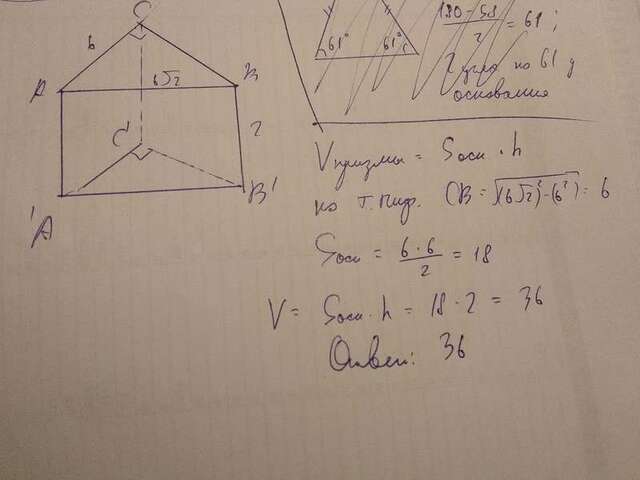 C
6
6√2
A
B
2
C'
B'
'A
61°
61°
(180-58)/2 = 61;
2 угла по 61 у
основания
Vпризмы = Sосн · h
по т.пиф. CB = √((6√2)² - (6²)) = 6
Sосн = (6 · 6)/2 = 18
V = Sосн · h = 18 · 2 = 36
Ответ: 36